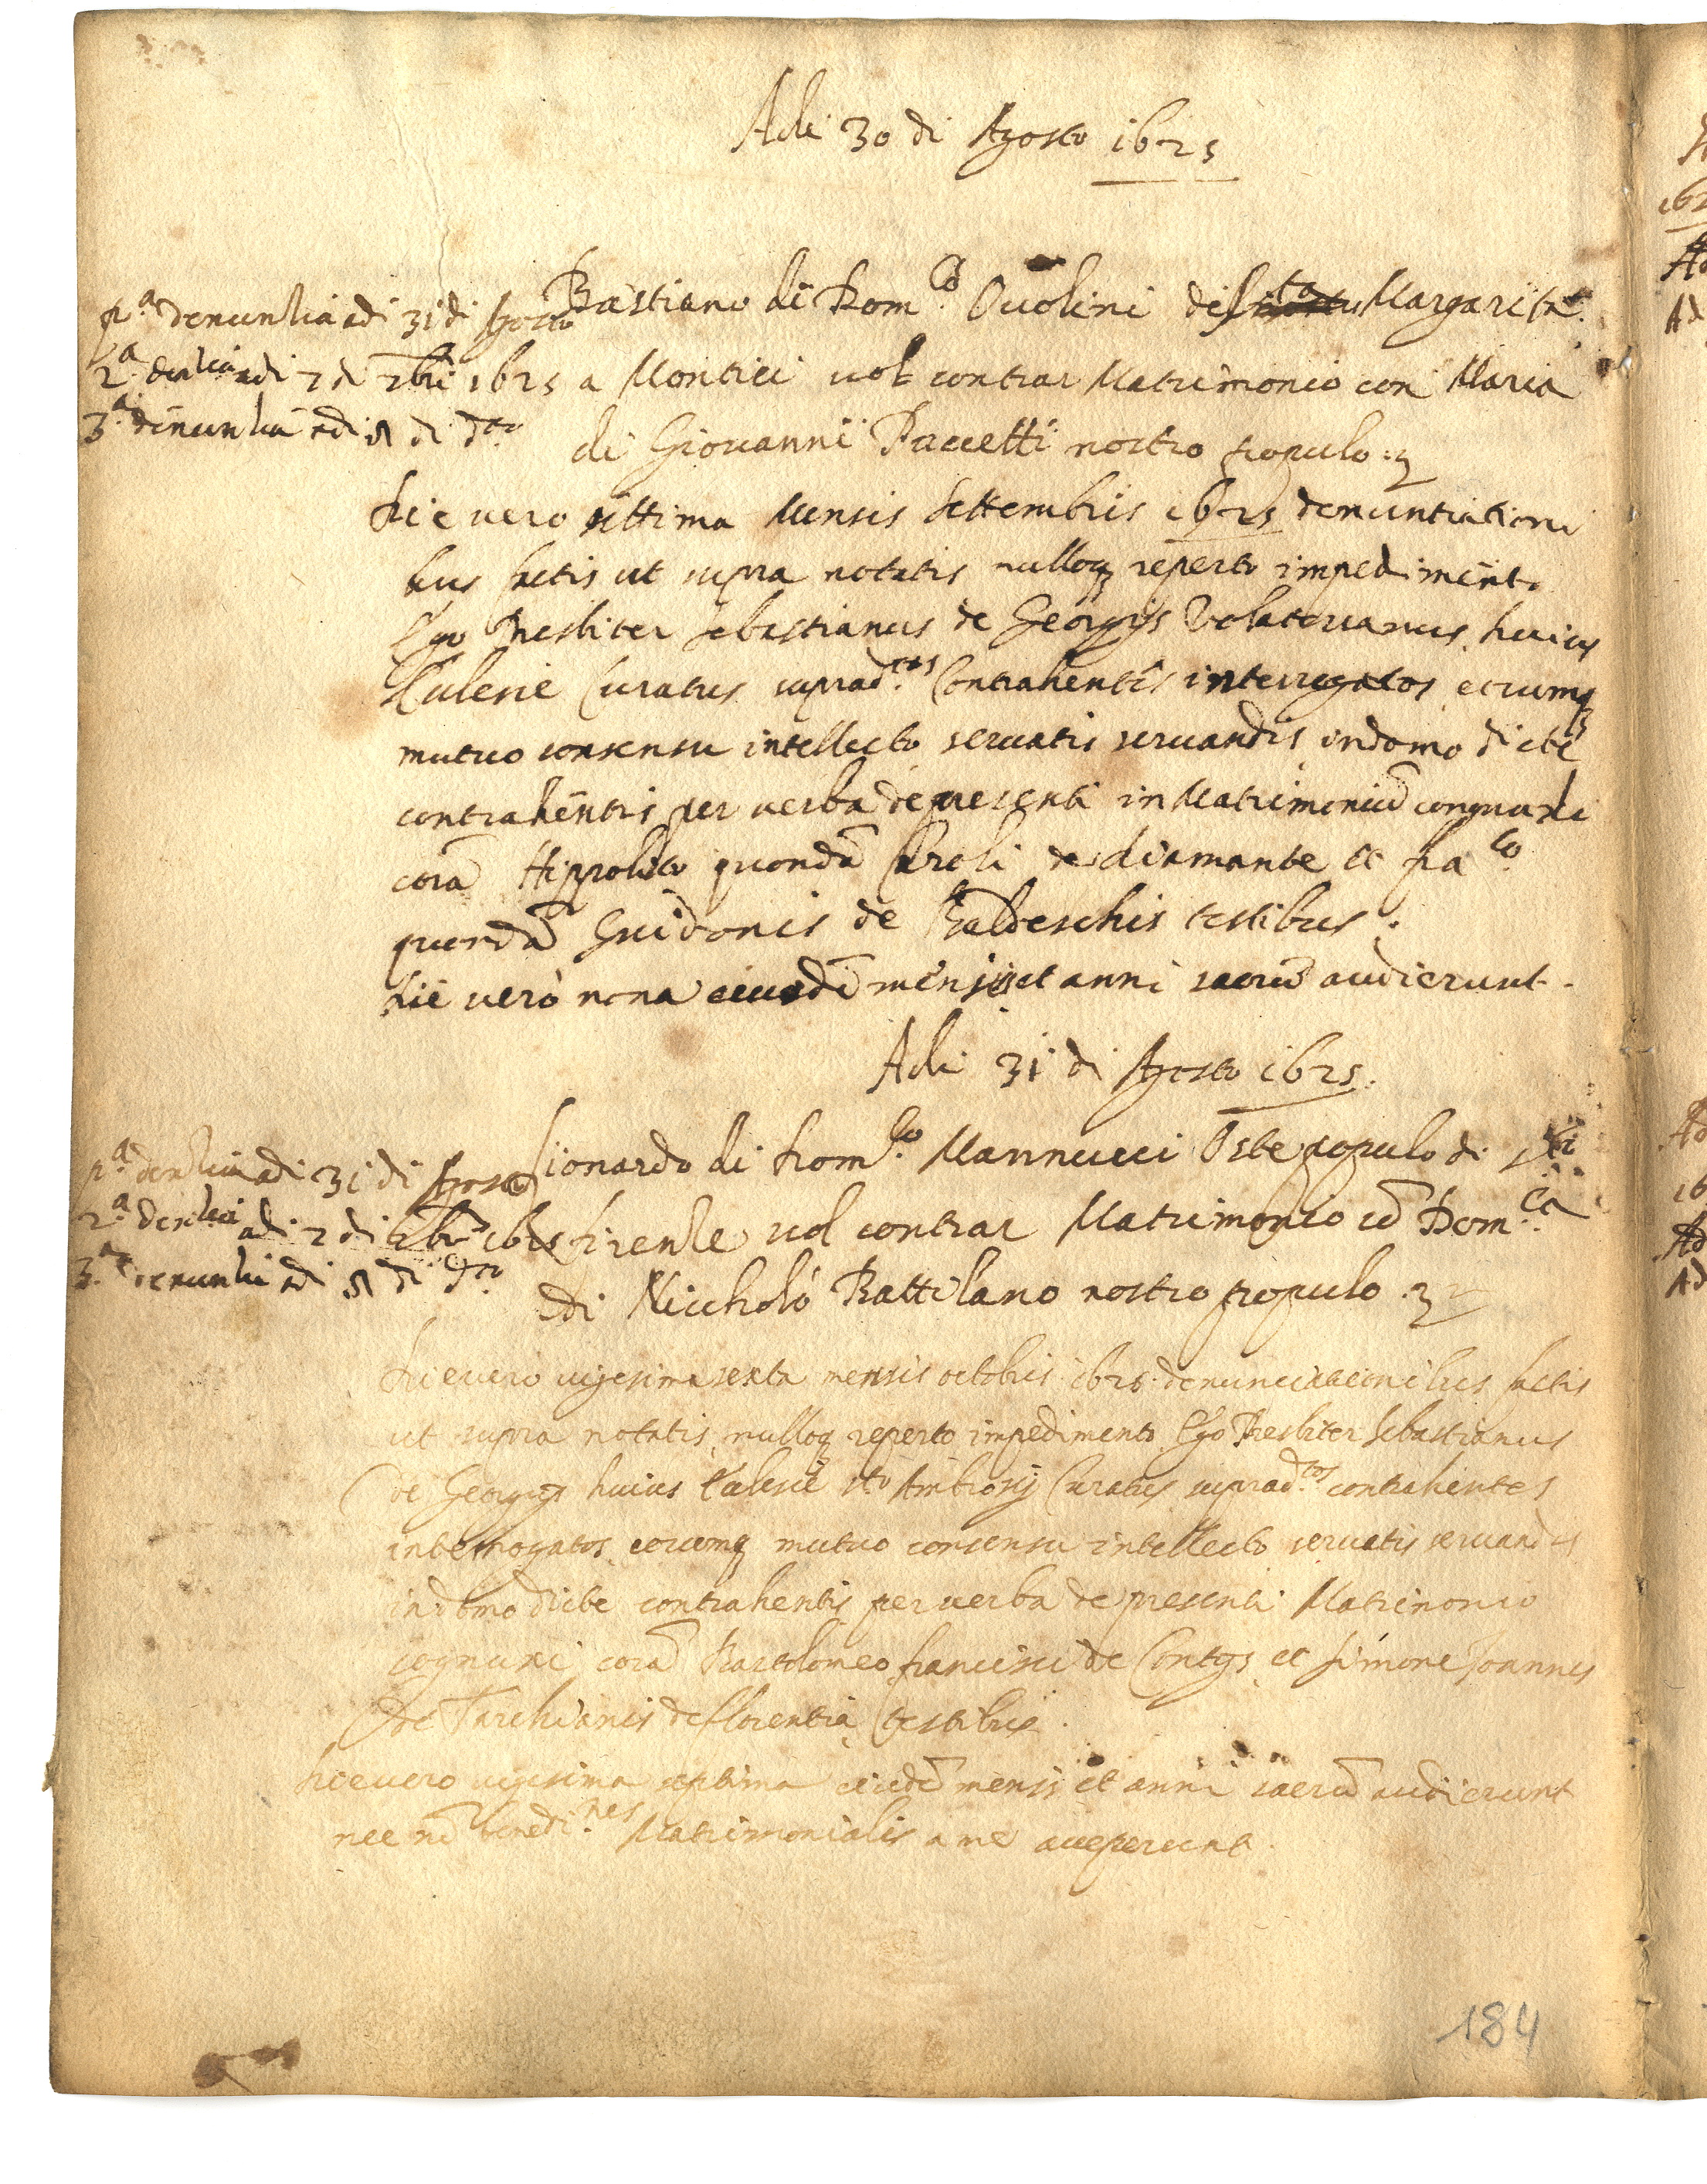 Adi 30 di Agosto 1625
Bastiano di Dom.co Ovolini di S.ta Margarita
p.a denuntia adi 31 di Agosto
2.a den.tia adi 2 di 7bre 1625 a Montici vol contrar Matrimonio con Maria
3.a denuntia adi 8 di d.to
di Giovanni Paccetti nostro populo
Die vero ultima Mensis Settembris 1625 denuntiationi
bus factis ut supra notatis nulloq reperto impedimento
Ego Presbiter Sebastianus de Georgijs Volaterranus huius
Eclesie Curatus suprad.tos Contrahentes interrogatos eorumq
mutuo consensu intellecto servatis servandis in domo dicte
contrahentis per verba de presenti in Matrimoniũ coniunxi
corã Hippolito quondã Caroli de diamante et fra.co
quondã Guidonis de Baldeschis testibus.
Die verò nona eiusdẽ mensis et anni sacrũ audierunt.
Adi 31 di Agosto 1625.
Lionardo di Dom.co Mannucci Oste populo di
p.a den.tia adi 31 di Agosto
2.a den.tia adi 2 di 7bre 1625 firenze vol contrar Matrimonio cõ Dom.ca
3.a denuntia adi 8 di d.to
Di Niccholò Battilano nostro populo
Die vero vigesima sexta mensis octobris 1625 denunciationibus factis
ut supra notatis nulloq reperto impedimento Ego Presbiter Sebastianus
de Georgijs huius Eclesie Sti Ambrosij Curatus suprad.tos contrahentes
interrogatos eorumq mutuo consensu intellecto servatis servandis
in domo dicte contrahentis per verba de presenti Matrimonio
cognunxi corã Bartolomeo francisci de Contijs et Simone Joannis
de Tarchianis de florentia testibus.
Die vero vigesima septima eiusdẽ mensis et anni sacrũ audierunt
nec nõ benedi.nes Matrimonialis a me acceperunt.
184